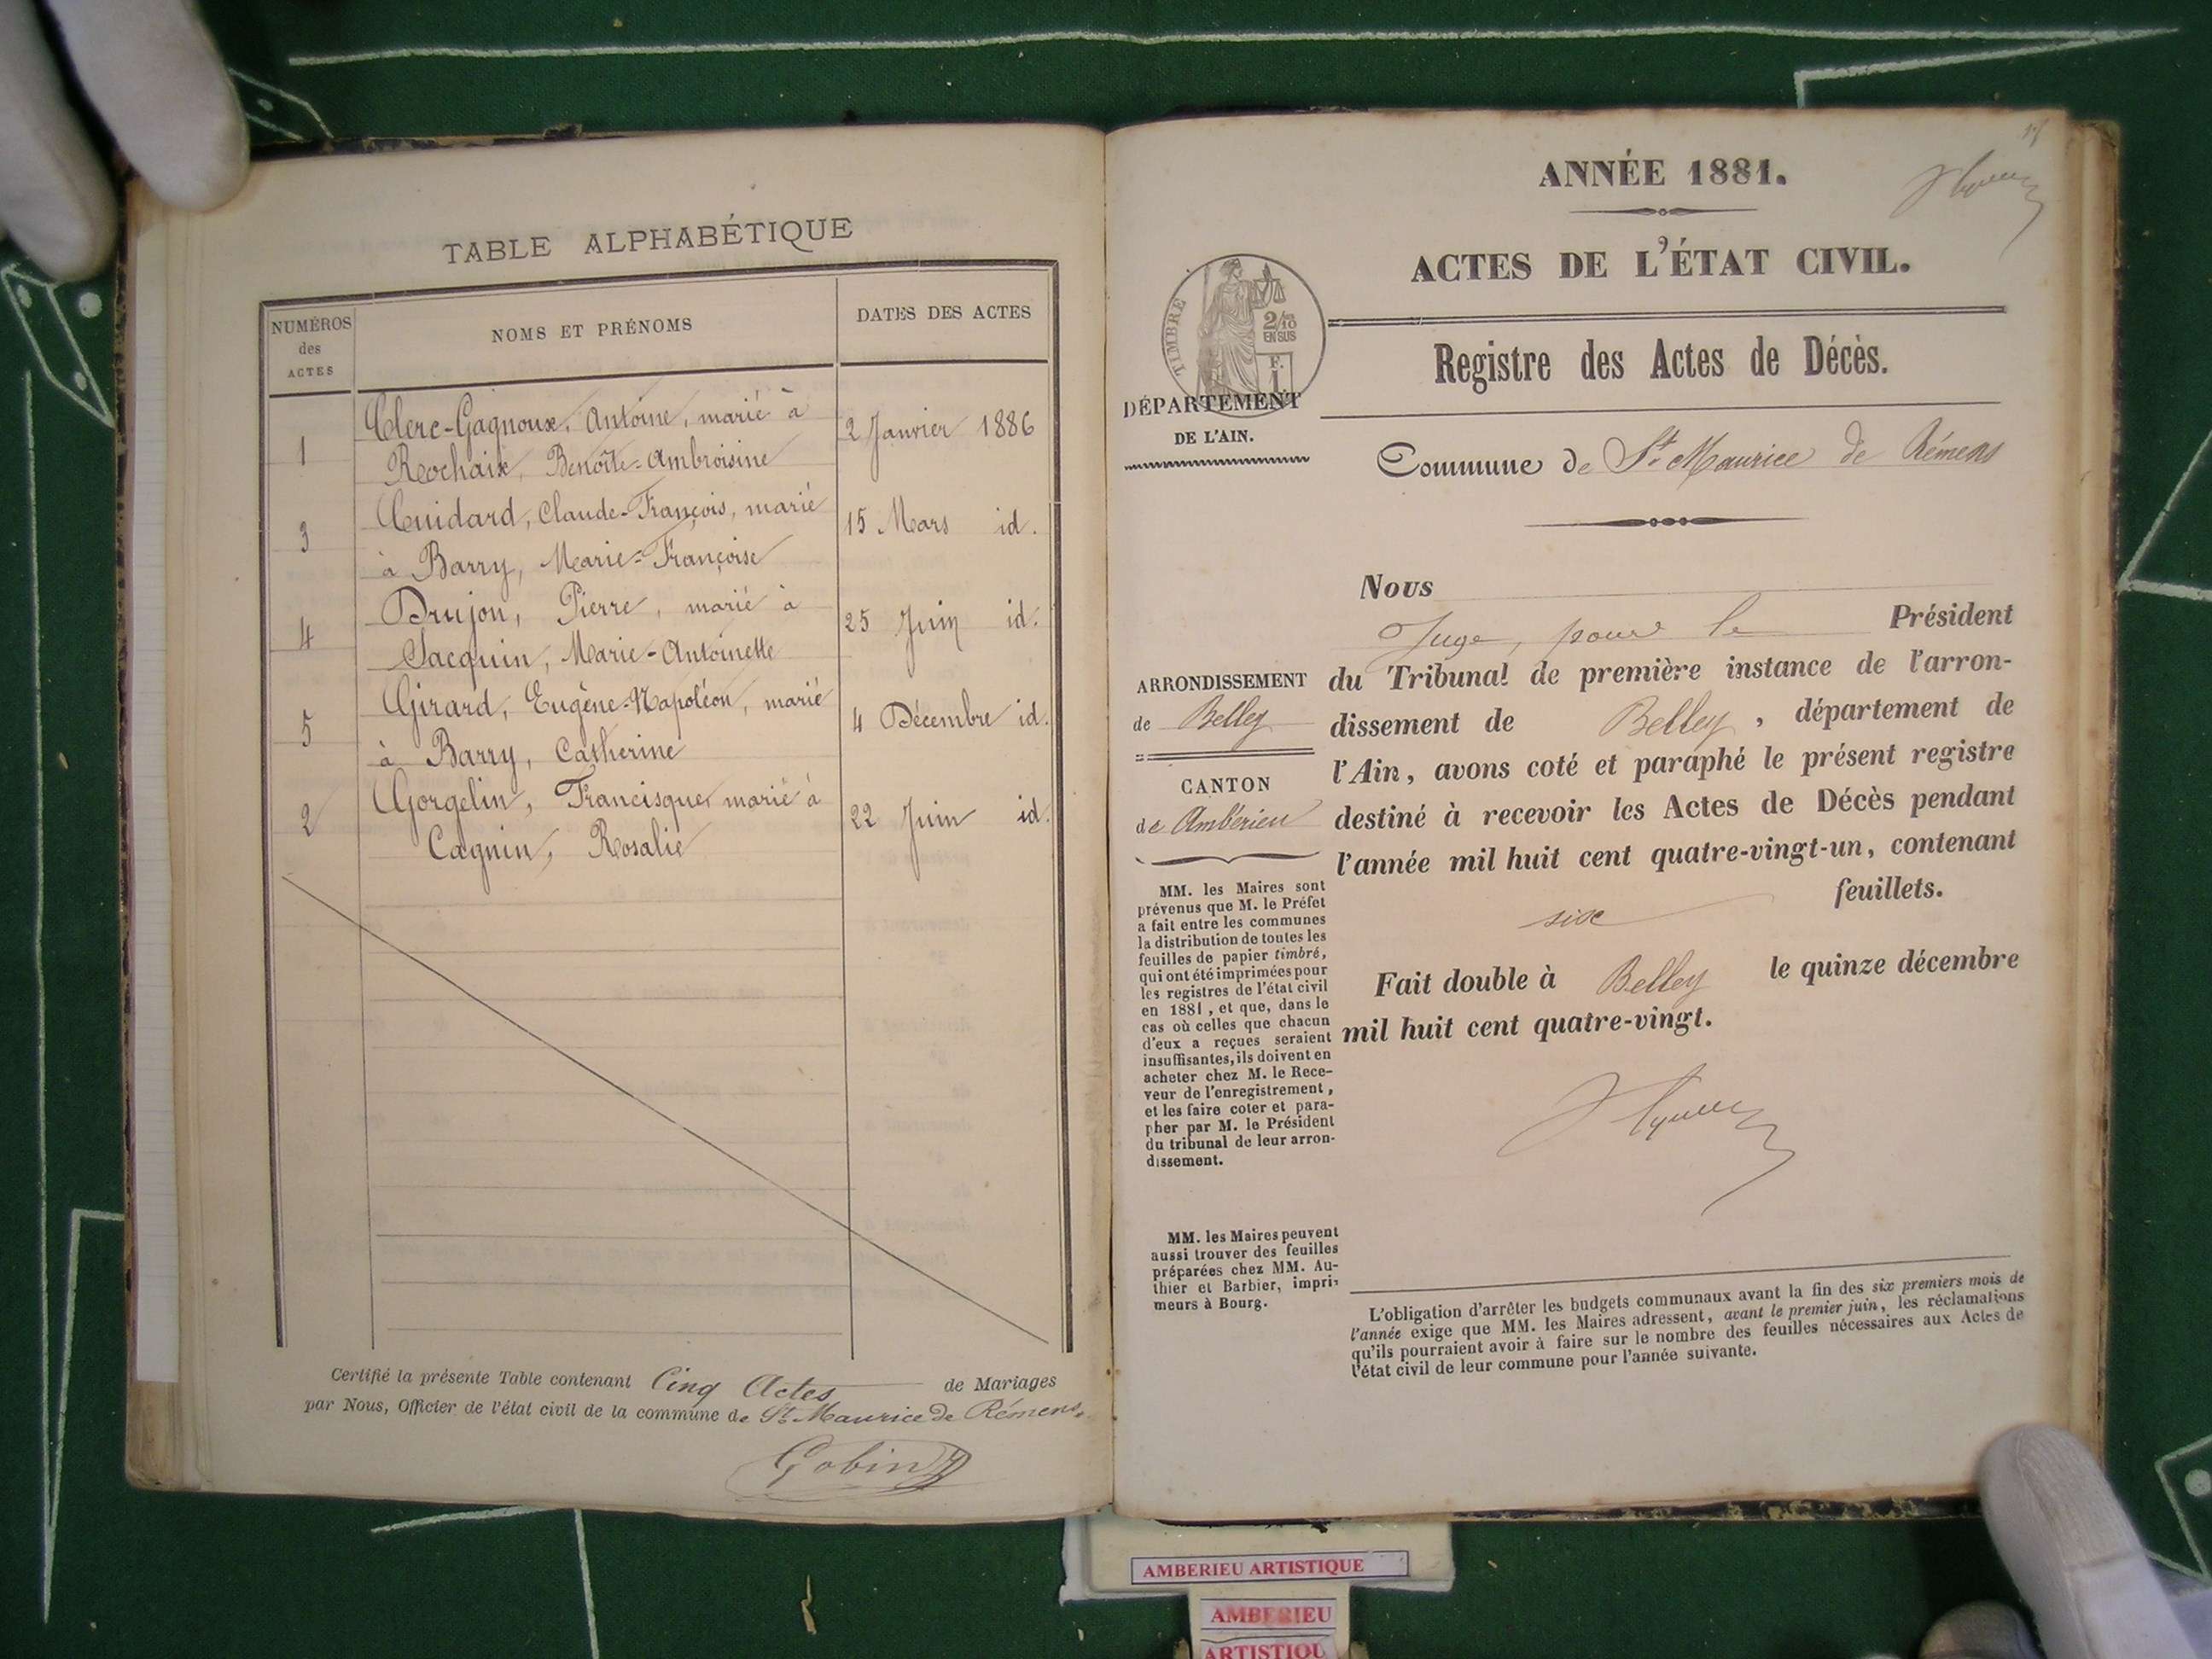 TABLE ALPHABÉTIQUE
NUMÉROS
des
ACTES
NOMS ET PRÉNOMS
DATES DES ACTES
1
Clerc-Gagnoux, Antoine, marié à
Rochaix, Benoîte-Ambroisine
2 Janvier 1886
3
Cuidard, Claude-François, marié
à Barry, Marie-Françoise
15 Mars id.
4
Drujon, Pierre, marié à
Jacquin, Marie-Antoinette
25 Juin id.
5
Girard, Eugène-Napoléon, marié
à Barry, Catherine
4 Décembre id.
2
Gorgelin, Francisque, marié à
Cagnin, Rosalie
22 Juin id.
Certifié la présente Table contenant Cinq Actes de Mariages
par Nous, Officier de l'état civil de la commune de St Maurice de Rémens.
Gobin
ANNÉE 1881.
ACTES DE L'ÉTAT CIVIL.
TIMBRE
2/10
EN SUS
F.
1
Registre des Actes de Décès.
DÉPARTEMENT
DE L'AIN.
Commune de St Maurice de Rémens
Nous
Juge, pour le Président
du Tribunal de première instance de l'arron-
dissement de Belley, département de
l'Ain, avons coté et paraphé le présent registre
destiné à recevoir les Actes de Décès pendant
l'année mil huit cent quatre-vingt-un, contenant
six feuillets.
Fait double à Belley le quinze décembre
mil huit cent quatre-vingt.
ARRONDISSEMENT
de Belley
CANTON
de Ambérieu
MM. les Maires sont
prévenus que M. le Préfet
a fait entre les communes
la distribution de toutes les
feuilles de papier timbré,
qui ont été imprimées pour
les registres de l'état civil
en 1881, et que, dans le
cas où celles que chacun
d'eux a reçues seraient
insuffisantes, ils doivent en
acheter chez M. le Rece-
veur de l'enregistrement,
et les faire coter et para-
pher par M. le Président
du tribunal de leur arron-
dissement.
MM. les Maires peuvent
aussi trouver des feuilles
préparées chez MM. Au-
thier et Barbier, impri-
meurs à Bourg.
L'obligation d'arrêter les budgets communaux avant la fin des six premiers mois de
l'année exige que MM. les Maires adressent, avant le premier juin, les réclamations
qu'ils pourraient avoir à faire sur le nombre des feuilles nécessaires aux Actes de
l'état civil de leur commune pour l'année suivante.
AMBERIEU ARTISTIQUE
AMBERIEU
ARTISTIQU